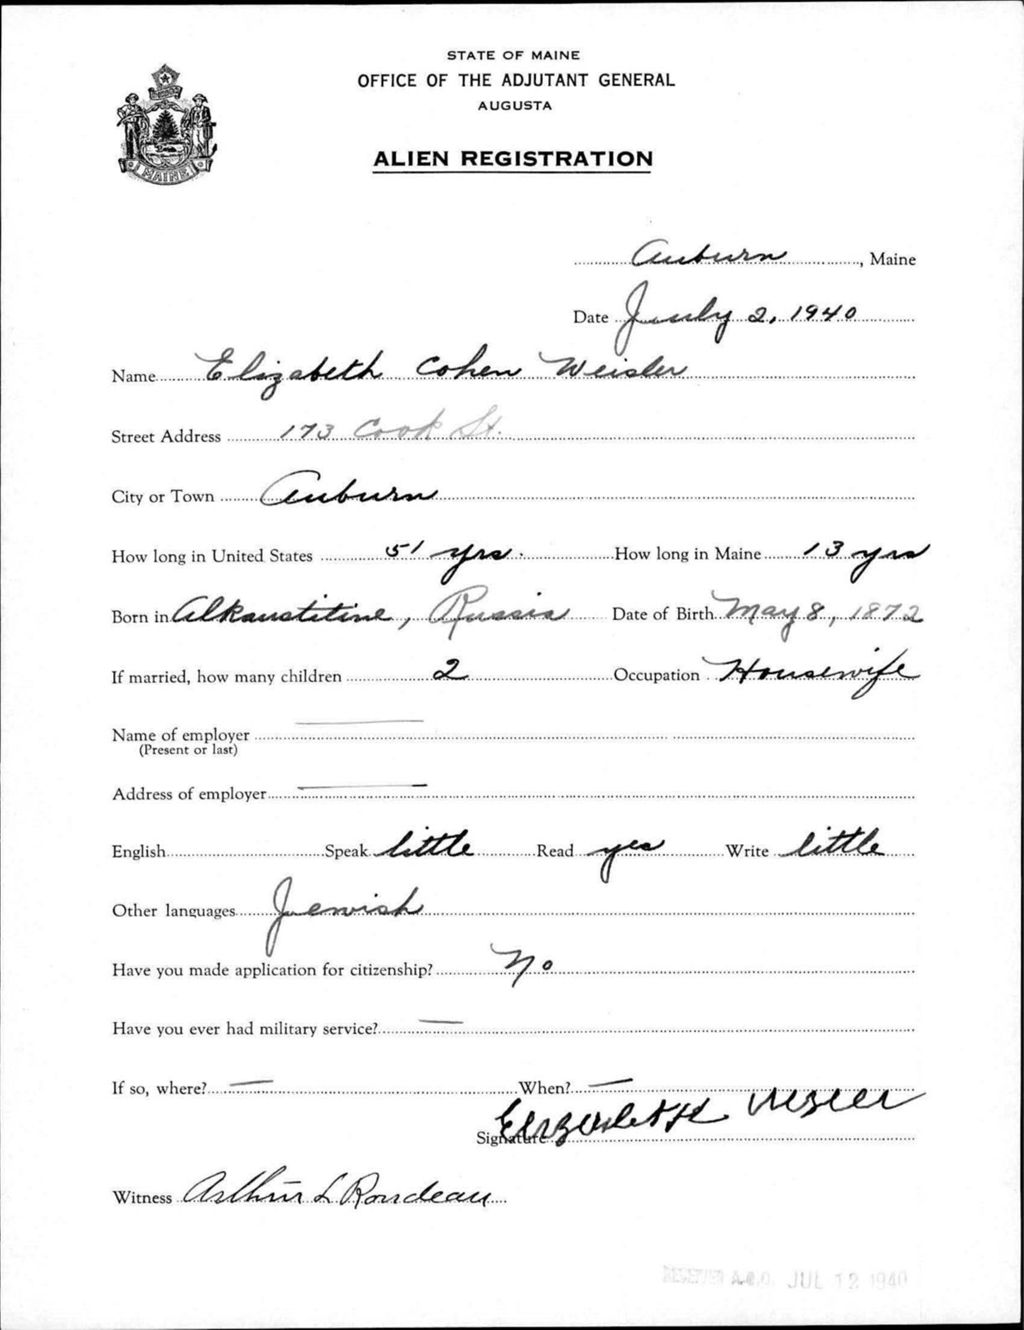 STATE OF MAINE
OFFICE OF THE ADJUTANT GENERAL
AUGUSTA
ALIEN REGISTRATION
MAINE
Auburn, Maine
Date July 2, 1940
Name Elizabeth Cohen Weisler
Street Address 173 Cook St.
City or Town Auburn
How long in United States 51 yrs. How long in Maine 13 yrs
Born in Alkanstitine, Russia Date of Birth May 8, 1872
If married, how many children 2 Occupation Housewife
Name of employer —
(Present or last)
Address of employer —
English Speak little Read yes Write little
Other languages Jewish
Have you made application for citizenship? No
Have you ever had military service? —
If so, where? — When? —
Signature
Witness Arthur L Rondeau
RECEIVED A.G.O. JUL 12 1940